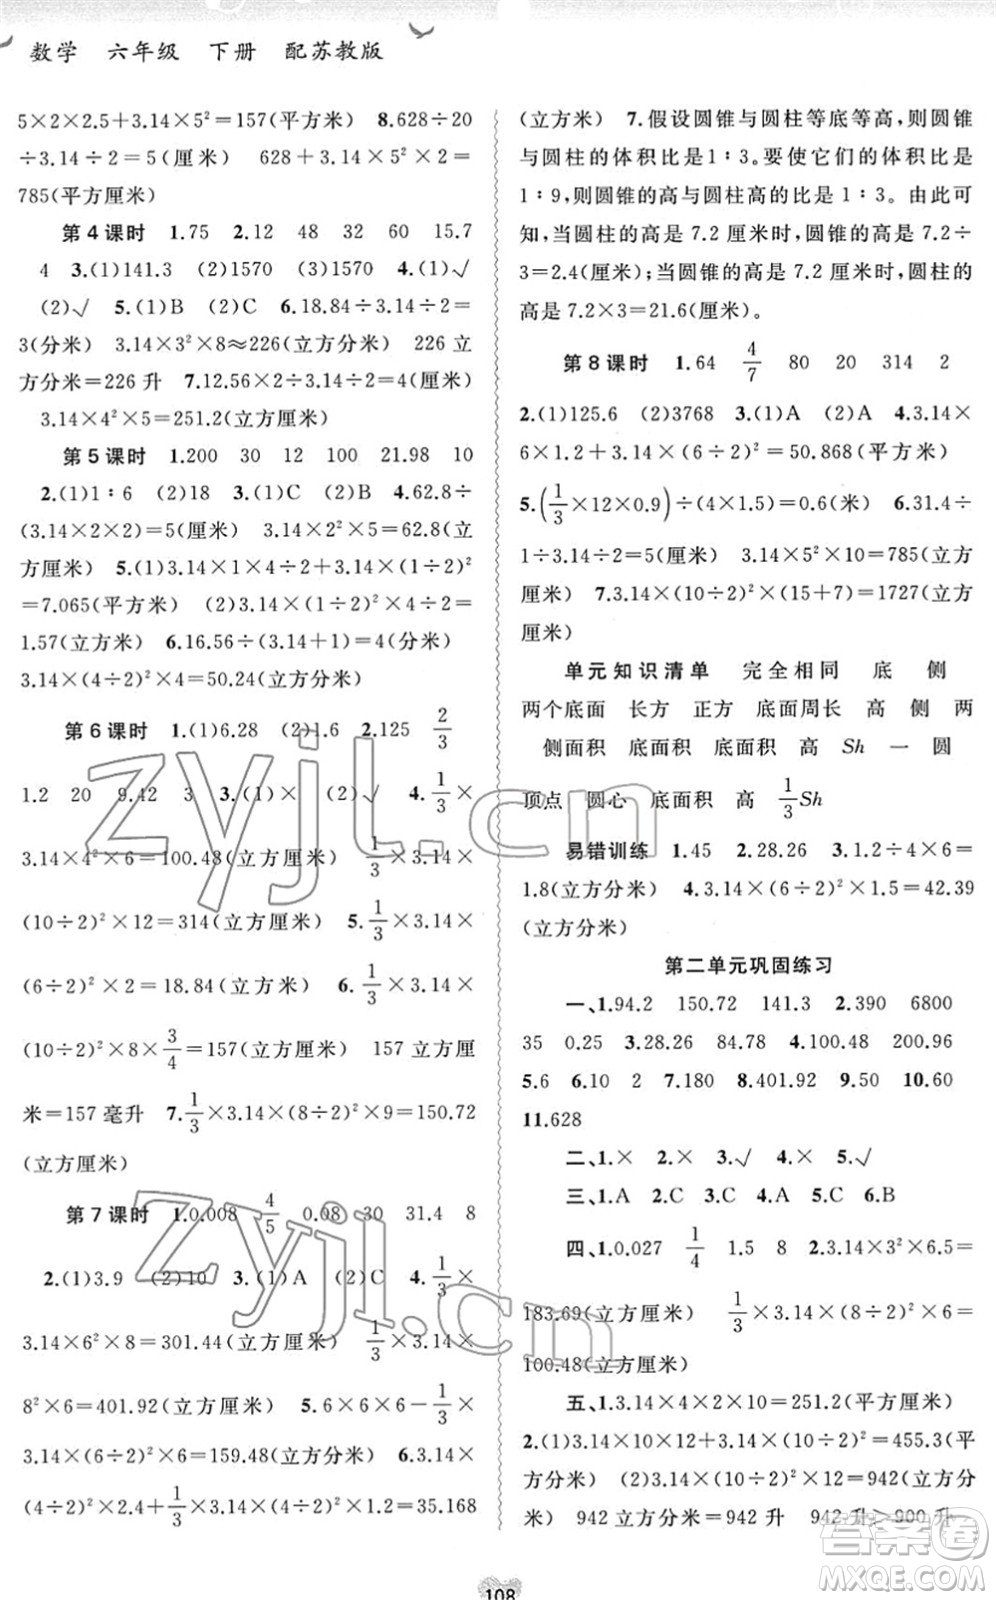 数学 六年级 下册 配苏教版
5×2×2.5+3.14×5²=157(平方米) 8.628÷20
÷3.14÷2=5(厘米) 628+3.14×5²×2=
785(平方厘米)
第4课时 1.75 2.12 48 32 60 15.7
4 3.(1)141.3 (2)1570 (3)1570 4.(1)√
(2)√ 5.(1)B (2)C 6.18.84÷3.14÷2=
3(分米) 3.14×3²×8≈226(立方分米) 226立
方分米=226升 7.12.56×2÷3.14÷2=4(厘米)
3.14×4²×5=251.2(立方厘米)
第5课时 1.200 30 12 100 21.98 10
2.(1)1∶6 (2)18 3.(1)C (2)B 4.62.8÷
(3.14×2×2)=5(厘米) 3.14×2²×5=62.8(立
方厘米) 5.(1)3.14×1×4÷2+3.14×(1÷2)²
=7.065(平方米) (2)3.14×(1÷2)²×4÷2=
1.57(立方米) 6.16.56÷(3.14+1)=4(分米)
3.14×(4÷2)²×4=50.24(立方分米)
第6课时 1.(1)6.28 (2)1.6 2.125 2/3
1.2 20 9.42 3 3.(1)× (2)√ 4.1/3×
3.14×4²×6=100.48(立方厘米) 1/3×3.14×
(10÷2)²×12=314(立方厘米) 5.1/3×3.14×
(6÷2)²×2=18.84(立方米) 6.1/3×3.14×
(10÷2)²×8×3/4=157(立方厘米) 157立方厘
米=157毫升 7.1/3×3.14×(8÷2)²×9=150.72
(立方厘米)
第7课时 1.0.008 4/5 0.08 30 31.4 8
2.(1)3.9 (2)10 3.(1)A (2)C 4.1/3×
3.14×6²×8=301.44(立方厘米) 1/3×3.14×
8²×6=401.92(立方厘米) 5.6×6×6-1/3×
3.14×(6÷2)²×6=159.48(立方分米) 6.3.14×
(4÷2)²×2.4+1/3×3.14×(4÷2)²×1.2=35.168
(立方米) 7.假设圆锥与圆柱等底等高,则圆锥
与圆柱的体积比是1∶3。要使它们的体积比是
1∶9,则圆锥的高与圆柱高的比是1∶3。由此可
知,当圆柱的高是7.2厘米时,圆锥的高是7.2÷
3=2.4(厘米);当圆锥的高是7.2厘米时,圆柱的
高是7.2×3=21.6(厘米)。
第8课时 1.64 4/7 80 20 314 2
2.(1)125.6 (2)3768 3.(1)A (2)A 4.3.14×
6×1.2+3.14×(6÷2)²=50.868(平方米)
5.(1/3×12×0.9)÷(4×1.5)=0.6(米) 6.31.4÷
1÷3.14÷2=5(厘米) 3.14×5²×10=785(立方
厘米) 7.3.14×(10÷2)²×(15+7)=1727(立方
厘米)
单元知识清单 完全相同 底 侧
两个底面 长方 正方 底面周长 高 侧 两
侧面积 底面积 底面积 高 Sh 一 圆
顶点 圆心 底面积 高 1/3Sh
易错训练 1.45 2.28.26 3.1.2÷4×6=
1.8(立方分米) 4.3.14×(6÷2)²×1.5=42.39
(立方分米)
第二单元巩固练习
一、1.94.2 150.72 141.3 2.390 6800
35 0.25 3.28.26 84.78 4.100.48 200.96
5.6 6.10 2 7.180 8.401.92 9.50 10.60
11.628
二、1.× 2.× 3.√ 4.× 5.√
三、1.A 2.C 3.C 4.A 5.C 6.B
四、1.0.027 1/4 1.5 8 2.3.14×3²×6.5=
183.69(立方厘米) 1/3×3.14×(8÷2)²×6=
100.48(立方厘米)
五、1.3.14×4×2×10=251.2(平方厘米)
2.(1)3.14×10×12+3.14×(10÷2)²=455.3(平
方分米) (2)3.14×(10÷2)²×12=942(立方分
米) 942立方分米=942升 942升>900升
108
zyjl.cn
zyjl.cn
答案圈
MXQE.COM